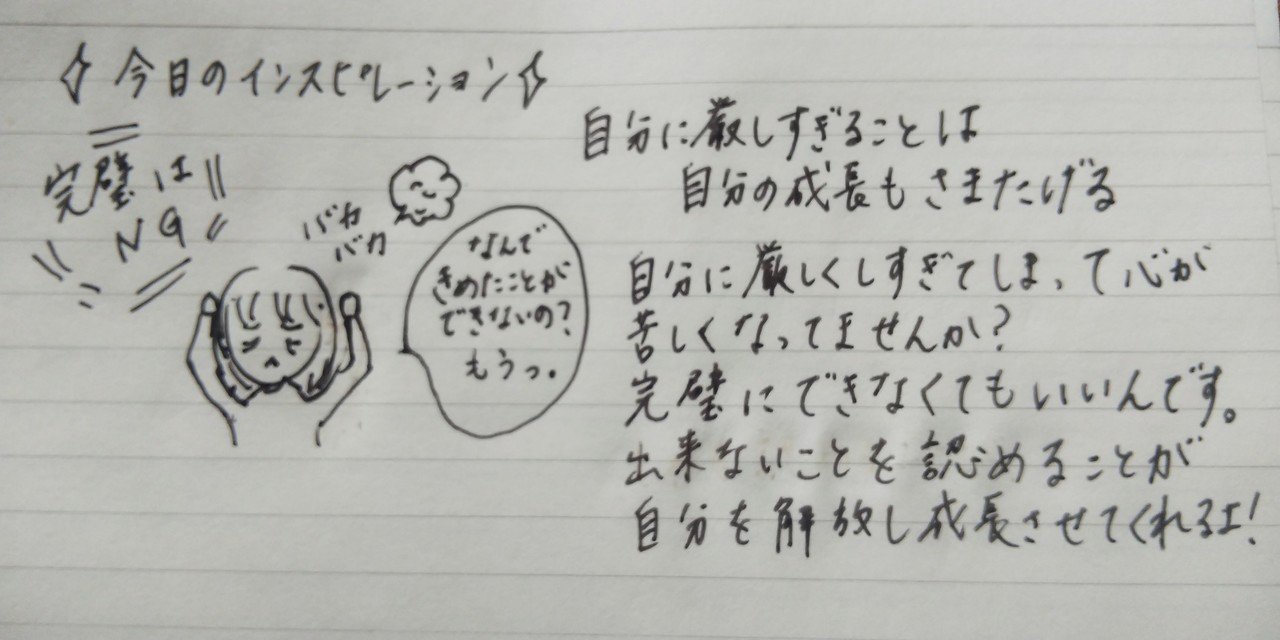 今日のインスピレーション
完璧は
NG
バカ
バカ
なんで
きめたことが
できないの?
もうっ。
自分に厳しすぎることは
自分の成長もさまたげる
自分に厳しくしすぎてしまって心が
苦しくなってませんか?
完璧にできなくてもいいんです。
出来ないことを認めることが
自分を解放し成長させてくれるよ!